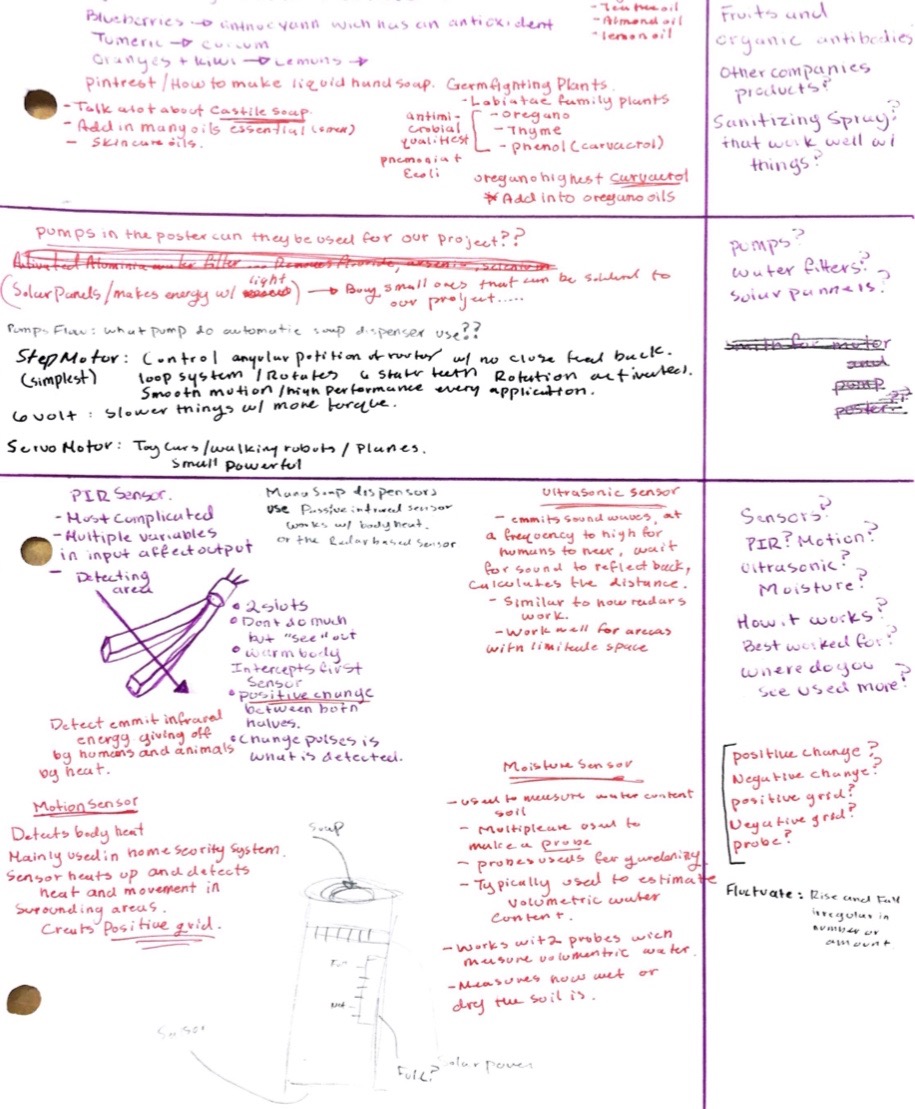 Blueberries → which has an antioxident
Tumeric →
Oranges + kiwi → Lemons →
- Almond oil
- lemon oil
Pintrest/How to make liquid hand soap.
- Talk alot about Castile soap.
- Add in many oils essential
- Skincare oils.
Germfighting Plants.
- Labiatae family plants
- oregano
- Thyme
- phenol (carvacrol)
antimi-
crobial
qualities
pnemonia +
Ecoli
oregano highest Carvacrol
* Add into oregano oils
Fruits and
organic antibodies
Other companies
products?
Sanitizing Spray?
that work well w/
things?
Pumps in the poster can they be used for our project??
Activated Aluminia water filter ... Removes flouride, arsenic, selenium
(Solar Panels/makes energy w/ light) → Buy small ones that can be soldend to
our project.....
Pumps Flow: what pump do automatic soap dispenser use??
Step Motor: Control angular potition of rooter w/ no close feed back.
(simplest) loop system / Rotates 6 state teeth Rotation activated.
Smooth motion/high performance every application.
6 volt: slower things w/ more torque.
Servo Motor: Toy Cars/walking robots/Planes.
Small powerful
Pumps?
water filters?
solar pannels?
smith for motor
and
pump
poster.
PIR Sensor.
- Most Complicated
- Multiple variables
in input affect output
- Detecting
area
• 2 slots
• Don't do much
but "see" out
• warm body
Intercepts first
Sensor
• positive change
between both
halves.
• Change pulses is
what is detected.
Detect emmit infrared
energy giving off
by humans and animals
by heat.
Many soap dispensors
use Passive infrared sensor
works w/ body heat.
or the Radar based sensor
Ultrasonic sensor
- emmits sound waves, at
a frequency to high for
humans to hear, wait
for sound to reflect back,
Calculates the distance.
- Similar to how radars
work.
- Work well for areas
with limitede space
Sensors?
PIR? Motion?
Ultrasonic?
Moisture?
How it works?
Best worked for?
where do you
see used more?
Motion Sensor
Detects body heat
Mainly used in home secrity system.
Sensor heats up and detects
heat and movement in
Surounding areas.
Creats Positive grid.
Soap
Full
Sensor
Full?
Solar power
Moisture Sensor
- used to measure water content
soil
- Multiple are used to
make a probe
- probes useds for gardenizg.
- Typically used to estimate
volumetric water
content.
- Works wit 2 probes wich
measure volumentric water.
- Measures how wet or
dry the soil is.
positive change?
Negative change?
positive grid?
Negative grid?
probe?
Fluctuate: Rise and Fall
irregular in
number or
amount